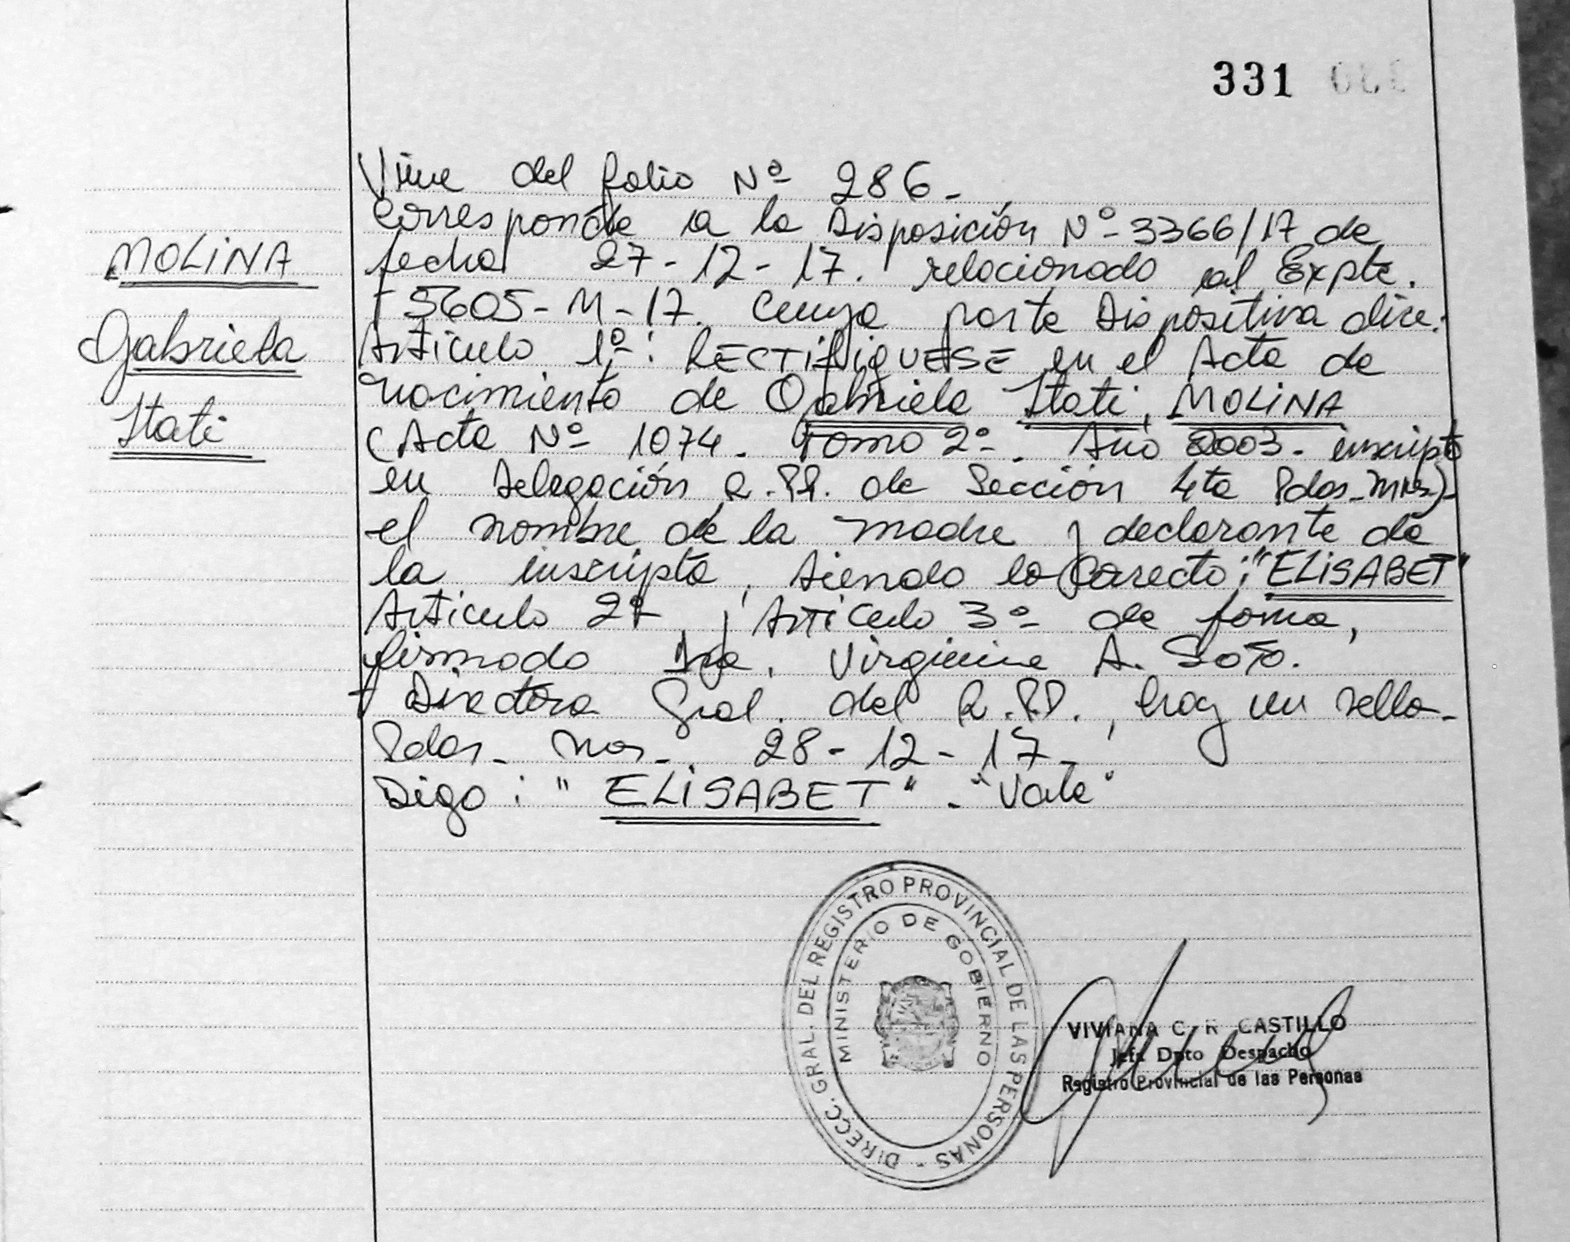 331
MOLINA
Gabriela
Itatí
Viene del folio Nº 286.
Corresponde a la Disposición Nº 3366/17 de
fecha 27-12-17. relacionado al Expte.
5605-M-17. Cuya parte Dispositiva dice:
Artículo 1º: RECTIFIQUESE en el Acta de
nacimiento de Gabriela Itatí, MOLINA
(Acta Nº 1074. Tomo 2º. Año 2003. inscripta
en Delegación R.PP. de Sección 4ta Pdas-Mnes)-
el nombre de la madre y declarante de
la inscripta, siendo lo correcto: "ELISABET"
Artículo 2º y Artículo 3º de forma,
firmado Virginia A. SOTO.
Directora Gral. del R.PP., hay un sello-
Pdas. Mnes. 28-12-17.
Digo: "ELISABET". "Vale"
DIRECC. GRAL. DEL REGISTRO PROVINCIAL DE LAS PERSONAS -
MINISTERIO DE GOBIERNO
VIVIANA C. R. CASTILLO
Jefa Dpto Despacho
Registro Provincial de las Personas